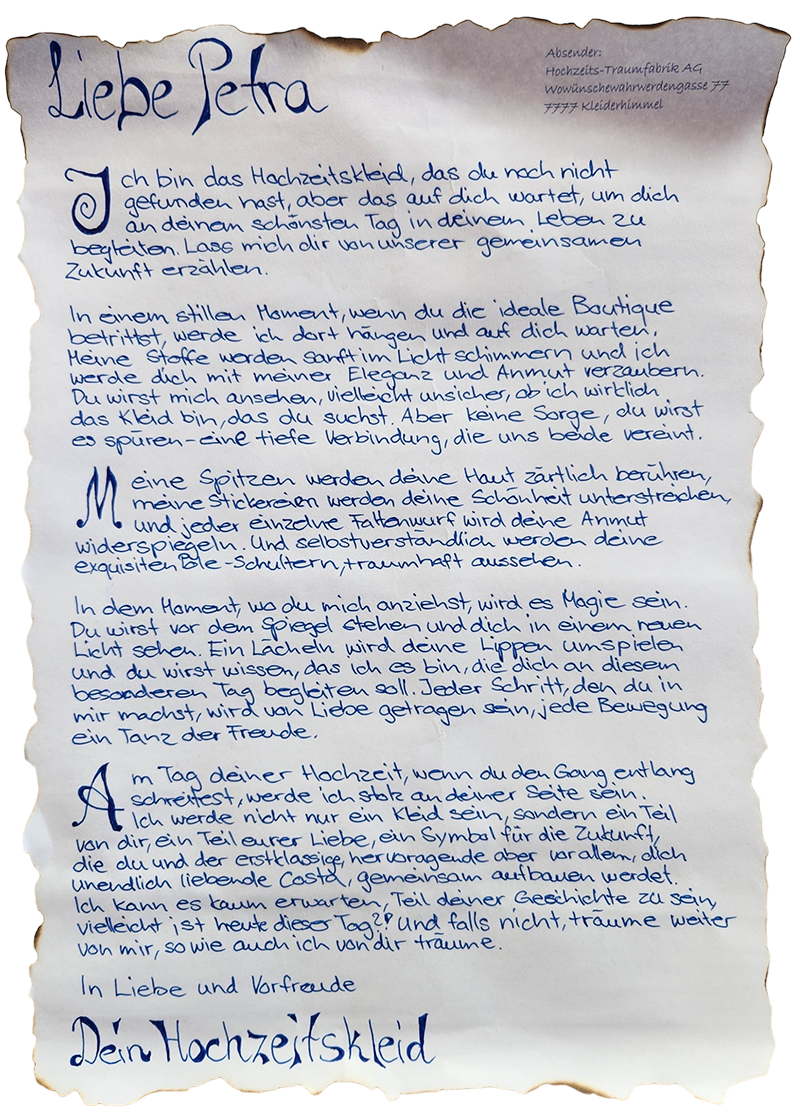 Liebe Petra
Absender:
Hochzeits-Traumfabrik AG
Wowünschewahrwerdengasse 77
7777 Kleiderhimmel
Ich bin das Hochzeitskleid, das du noch nicht
gefunden hast, aber das auf dich wartet, um dich
an deinem schönsten Tag in deinem Leben zu
begleiten. Lass mich dir von unserer gemeinsamen
Zukunft erzählen.
In einem stillen Moment, wenn du die ideale Boutique
betrittst, werde ich dort hängen und auf dich warten.
Meine Stoffe werden sanft im Licht schimmern und ich
werde dich mit meiner Eleganz und Anmut verzaubern.
Du wirst mich ansehen, vielleicht unsicher, ob ich wirklich
das Kleid bin, das du suchst. Aber keine Sorge, du wirst
es spüren - eine tiefe Verbindung, die uns beide vereint.
Meine Spitzen werden deine Haut zärtlich berühren,
meine Stickereien werden deine Schönheit unterstreichen,
und jeder einzelne Faltenwurf wird deine Anmut
widerspiegeln. Und selbstverständlich werden deine
exquisiten Pole-Schultern, traumhaft aussehen.
In dem Moment, wo du mich anziehst, wird es Magie sein.
Du wirst vor dem Spiegel stehen und dich in einem neuen
Licht sehen. Ein Lächeln wird deine Lippen umspielen
und du wirst wissen, das ich es bin, die dich an diesem
besonderen Tag begleiten soll. Jeder Schritt, den du in
mir machst, wird von Liebe getragen sein, jede Bewegung
ein Tanz der Freude.
Am Tag deiner Hochzeit, wenn du den Gang entlang
schreitest, werde ich stolz an deiner Seite sein.
Ich werde nicht nur ein Kleid sein, sondern ein Teil
von dir, ein Teil eurer Liebe, ein Symbol für die Zukunft,
die du und der erstklassige, hervoragende aber vor allem, dich
unendlich liebende Costa, gemeinsam aufbauen werdet.
Ich kann es kaum erwarten, Teil deiner Geschichte zu sein,
vielleicht ist heute dieser Tag?? Und falls nicht, träume weiter
von mir, so wie auch ich von dir träume.
In Liebe und Vorfreude
Dein Hochzeitskleid